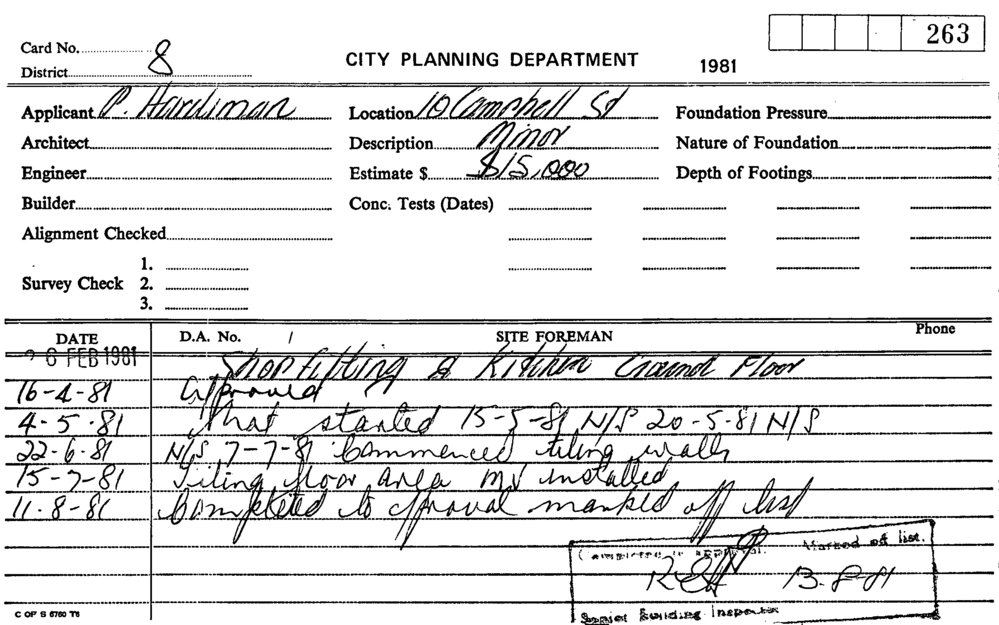 263
Card No.
District 8
CITY PLANNING DEPARTMENT 1981
Applicant P. Hardiman Location 10 Campbell St Foundation Pressure
Architect Description Minor Nature of Foundation
Engineer Estimate $ $15,000 Depth of Footings
Builder Conc. Tests (Dates)
Alignment Checked
1.
Survey Check 2.
3.
DATE D.A. No. / SITE FOREMAN Phone
26 FEB 1981 Shop fitting & Kitchen Ground Floor
16-4-81 Approved
4-5-81 started 15-5-81 N/S 20-5-81 N/S
22-6-81 N/S 7-7-81 Commenced tiling walls
15-7-81 Tiling floor area installed
11-8-81 Completed to approval marked off list
Completed to approval. Marked off list.
13-8-81
Senior Building Inspector
C OF S 6760 T6